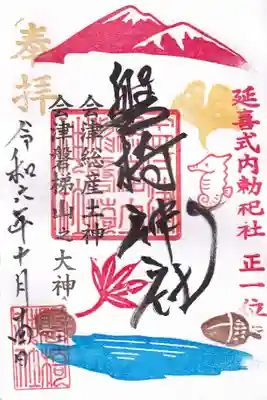 延喜式内勅祀社 正一位
磐椅神社
会津総産土神
会津磐梯山之大神
奉拝
令和六年十月